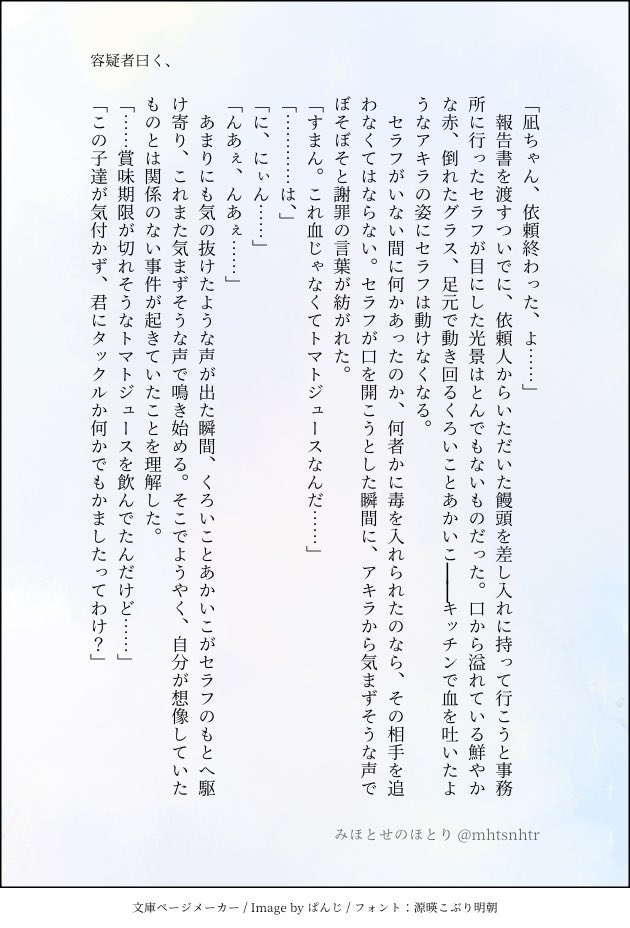 容疑者曰く、
「凪ちゃん、依頼終わった、よ……」
　報告書を渡すついでに、依頼人からいただいた饅頭を差し入れに持って行こうと事務
所に行ったセラフが目にした光景はとんでもないものだった。口から溢れている鮮やか
な赤、倒れたグラス、足元で動き回るくろいことあかいこ――キッチンで血を吐いたよ
うなアキラの姿にセラフは動けなくなる。
　セラフがいない間に何かあったのか、何者かに毒を入れられたのなら、その相手を追
わなくてはならない。セラフが口を開こうとした瞬間に、アキラから気まずそうな声で
ぼそぼそと謝罪の言葉が紡がれた。
「すまん。これ血じゃなくてトマトジュースなんだ……」
「…………は、」
「に、にぃん……」
「んあぇ、んあぇ……」
　あまりにも気の抜けたような声が出た瞬間、くろいことあかいこがセラフのもとへ駆
け寄り、これまた気まずそうな声で鳴き始める。そこでようやく、自分が想像していた
ものとは関係のない事件が起きていたことを理解した。
「……賞味期限が切れそうなトマトジュースを飲んでたんだけど……」
「この子達が気付かず、君にタックルか何かでもかましたってわけ？」
みほとせのほとり @mhtsnhtr
文庫ページメーカー / Image by ぱんじ / フォント：源暎こぶり明朝